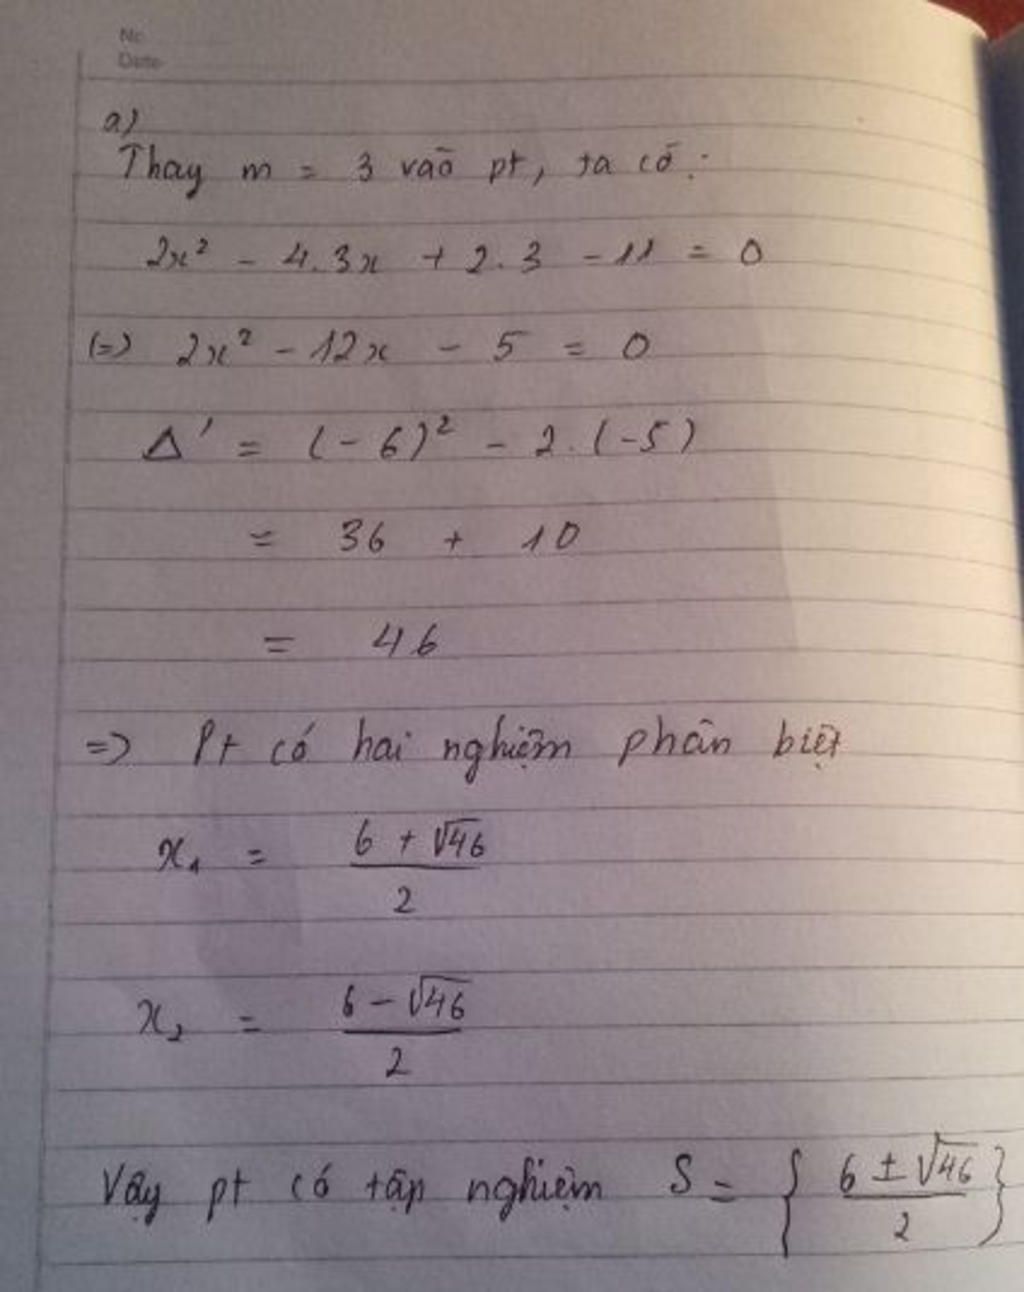 No
Date
a)
Thay m = 3 vào pt, ta có:
2x² - 4.3x + 2.3 - 11 = 0
(=) 2x² - 12x - 5 = 0
Δ' = (-6)² - 2.(-5)
= 36 + 10
= 46
=> Pt có hai nghiệm phân biệt
x₁ = (6 + √46)/2
x₂ = (6 - √46)/2
Vậy pt có tập nghiệm S = { (6 ± √46)/2 }